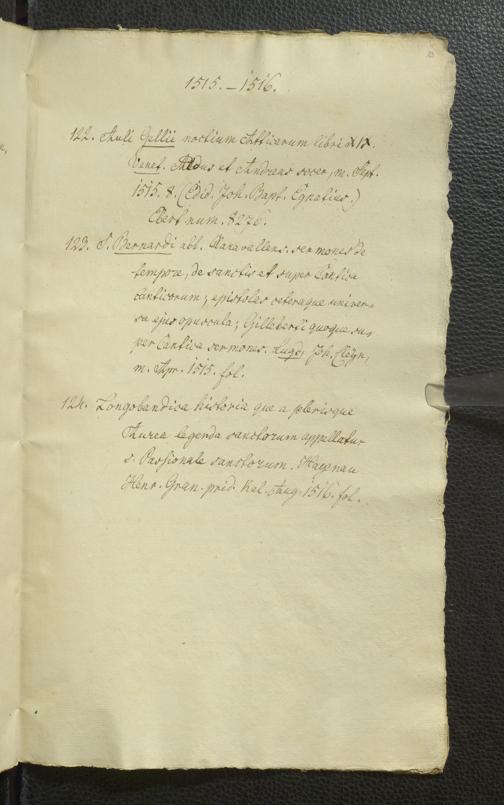 1515.–1516.
122. Auli Gellii noctium Atticarum libri XIX.
Venet. Aldus et Andreas socer, m. Sept.
1515. 8. (Edid. Joh. Bapt. Egnatius.)
Ebert num. 8276.
123. S. Bernardi abb. Claravallens. sermones de
tempore, de sanctis et super Cantica
canticorum; epistoles ceteraque univer-
sa ejus opuscula; Gilleberti quoque su-
per Cantica sermones. Lugd, Joh. Cleyn,
m. Apr. 1515. fol.
124. Longobardica historia que a plerisque
Aurea legenda sanctorum appellatur
s. Passionale sanctorum. Hagenau
Henr. Gran. prid. Kal. Aug. 1516. fol.